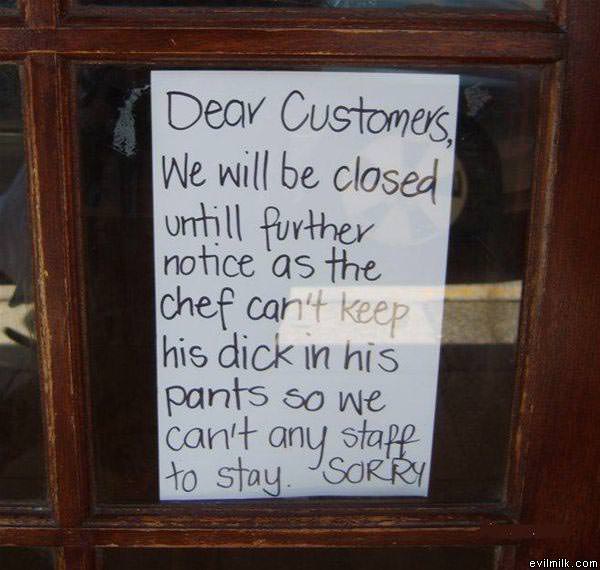 Dear Customers,
We will be closed
untill further
notice as the
chef can't keep
his dick in his
pants so we
can't any staff
to stay. SORRY
evilmilk.com